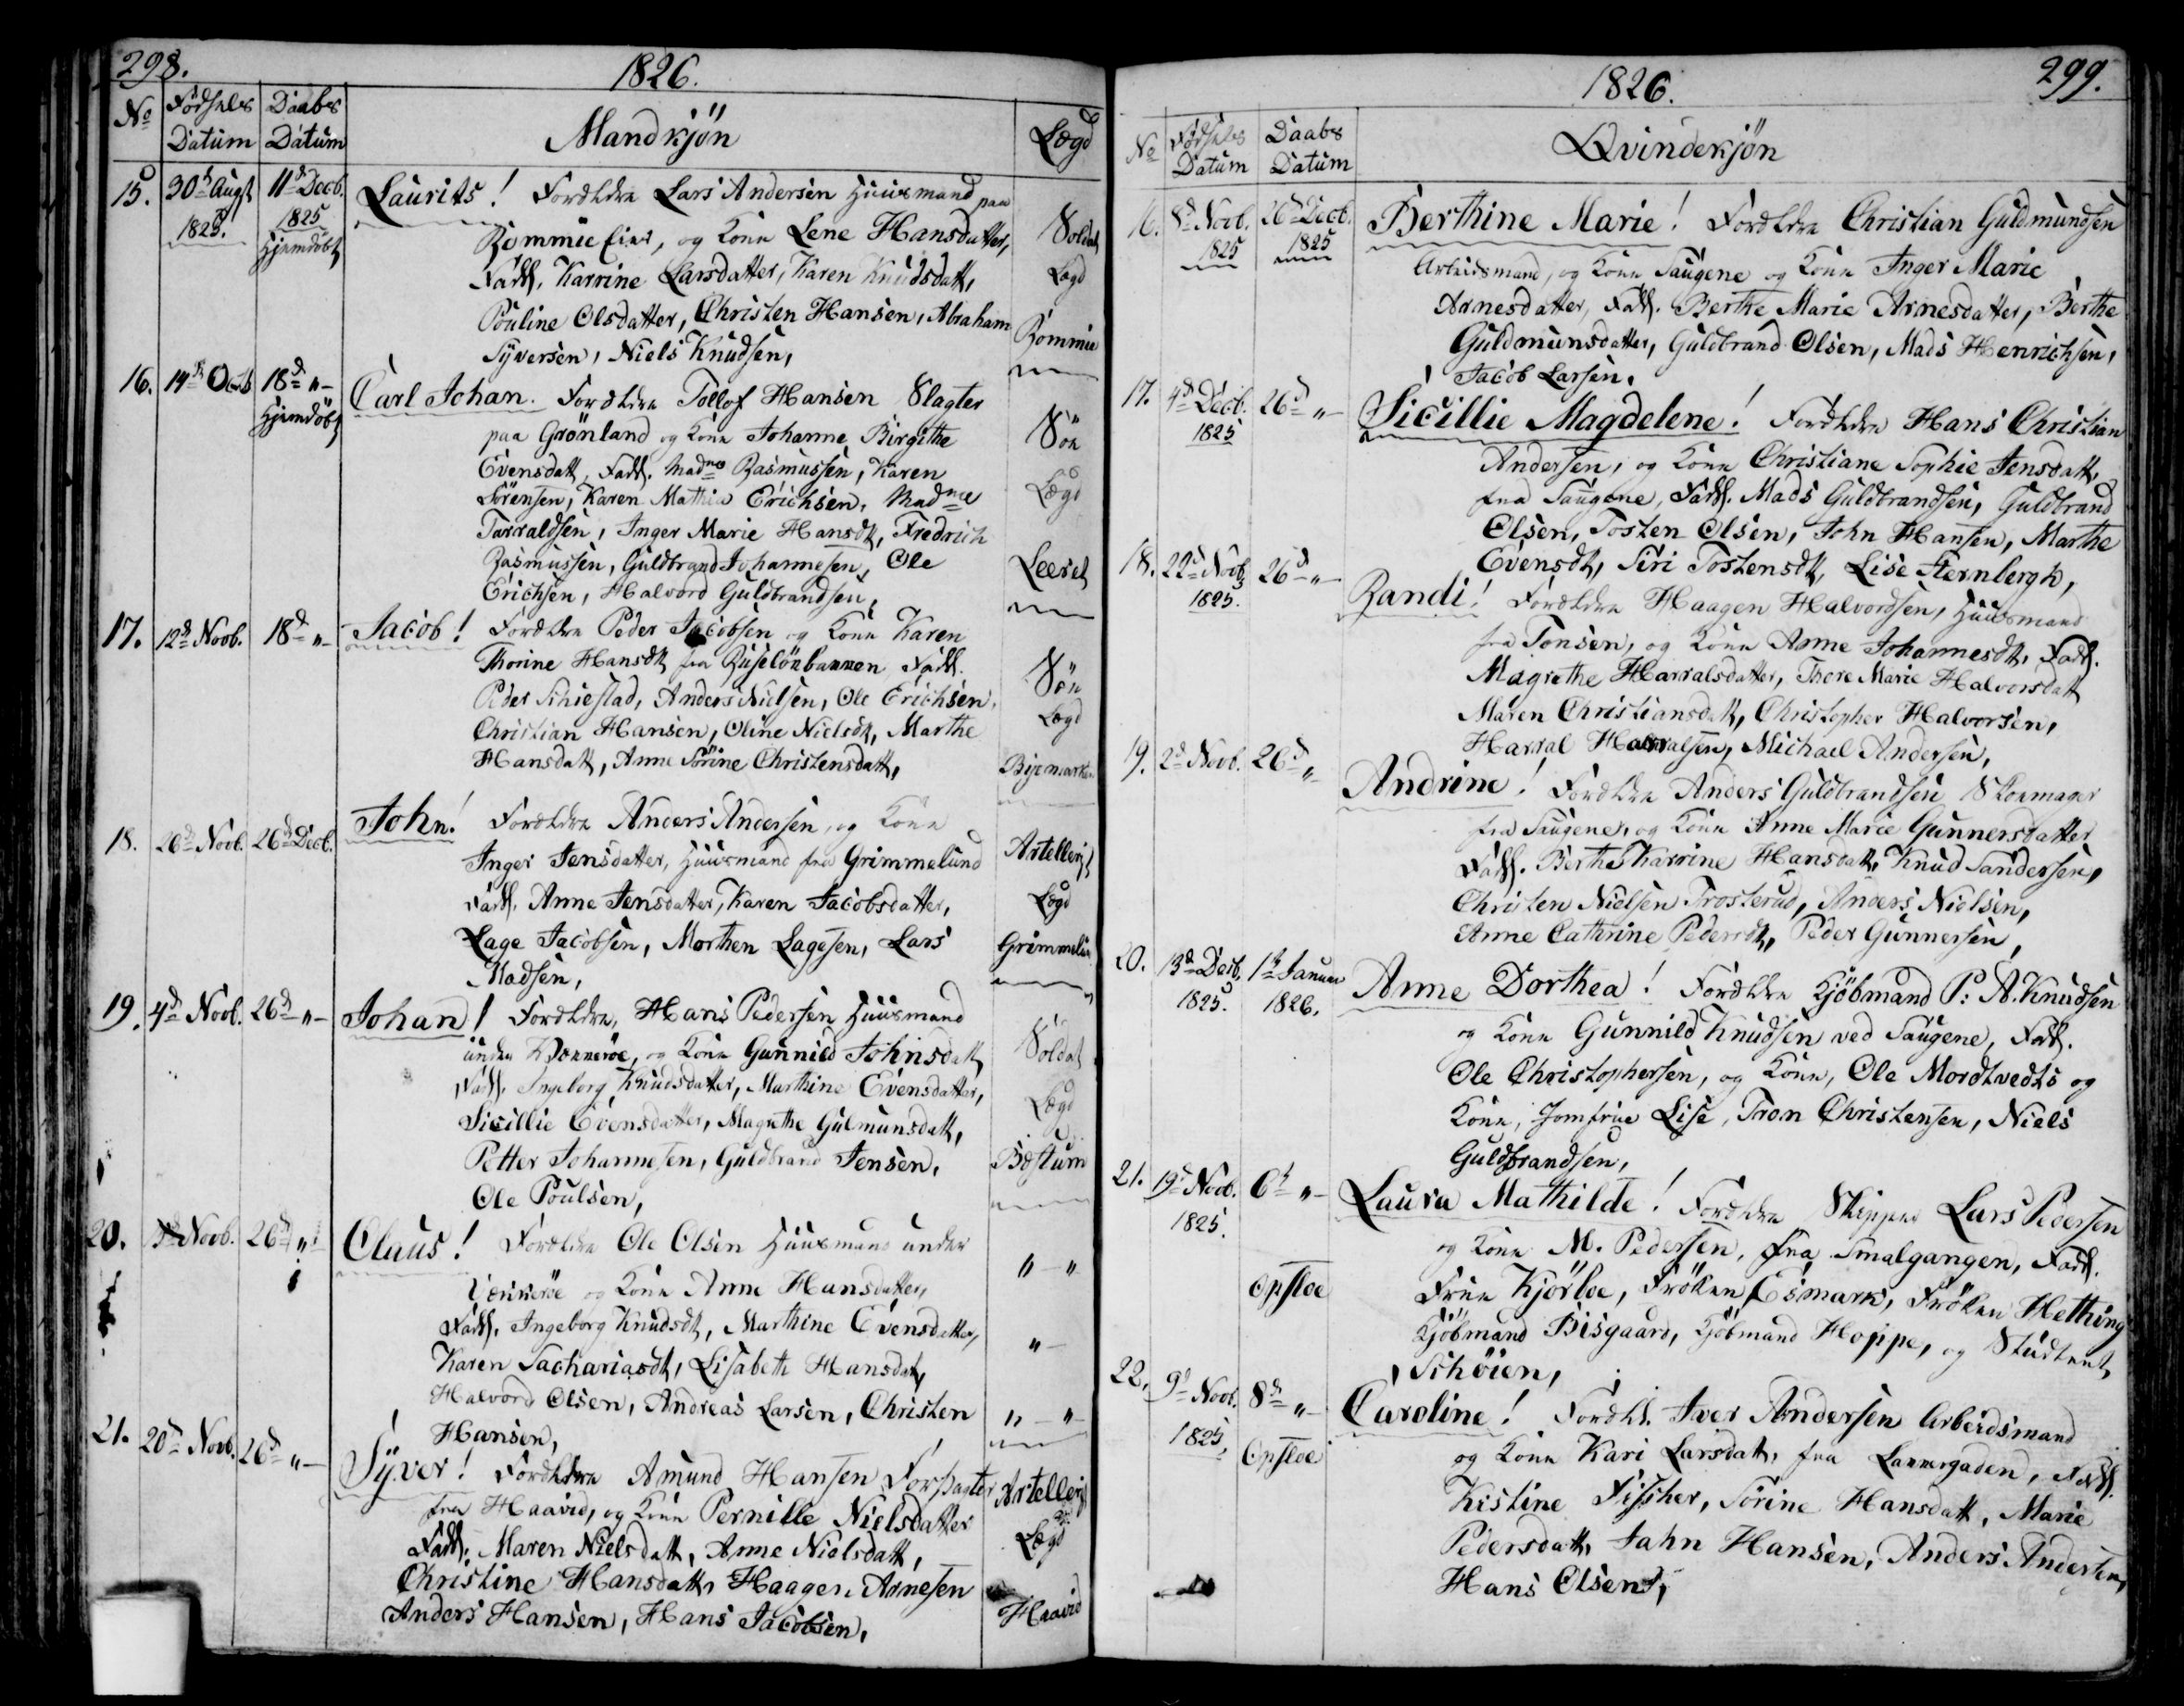 298.
1826.
No Fødsels Datum Daabs Datum Mandkjön Lægd
15. 30t Augst 1825. 11t Decb. 1825 Hjemdöbt
Laurits! Forældre Lars Andersen Huusmand paa
Rommie Eier, og Kone Lene Hansdatter,
Fadd. Karrine Larsdatter, Karen Knudsdatt,
Pouline Olsdatter, Christen Hansen, Abraham
Syversen, Niels Knudsen,
Soldat
Lægd
Rommie
16. 14d Octb 18d "- Hjemdöbt
Carl Johan. Forældre Tollof Hansen Slagter
paa Grönland og Kone Johanne Birgithe
Evensdatt, Fadd. Madme Rasmussen, Karen
Sörensen, Karen Mathia Erichsen, Madme
Tarraldsen, Inger Marie Hansdt, Fredrich
Rasmussen, Guldbrand Johannesen, Ole
Erichsen, Halvord Guldbrandsen,
Söe
Lægd
Leeret
17. 12d Novb. 18d "-
Jacob! Forældre Peder Jacobsen og Kone Karen
Thorine Hansdt fra Ruselöebannen Fadd.
Peder Schiestad, Anders Nielsen, Ole Erichsen,
Christian Hansen, Oline Nielsdt, Marthe
Hansdatt, Anne Sörine Christensdatt,
Söe
Lægd
Bijemarken
18. 26d Novb. 26d Decb.
John! Forældre Anders Andersen, og Kone
Inger Jensdatter, Huusmand fra Grimmelund
Fadd. Anne Jensdatter, Karen Jacobsdatter,
Lage Jacobsen, Morthen Lagesen, Lars
Madsen,
Artellerist
Lægd
Grimmelun
19. 4d Novb. 26d "-
Johan! Forældre, Hans Pedersen Huusmand
under Kvænneröe, og Kone Gunnild Johnsdatt
Fadd. Ingeborg Knudsdatter, Marthine Evensdatter,
Sicillie Evensdatter, Magrethe Gulmunsdatt,
Petter Johannesen, Guldbrand Jensen,
Ole Poulsen,
Soldat
Lægd
Bæstum
20. Novb. 26d "-
Claus! Forældre Ole Olsen Huusmand under
og Kone Anne Hansdatter,
Fadd. Ingeborg Knudsdt, Marthine Evensdatter,
Karen Sachariasdt, Lisabeth Hansdat,
Halvord Olsen, Andreas Larsen, Christen
Hansen,
" - "
" -
" - "
21. 20d Novb. 26d "-
Syver! Forældre Amund Hansen Forpagter
fra Haavid, og Kone Pernille Nielsdatter
Fadd. Maren Nielsdatt, Anne Nielsdatt,
Christine Hansdatt, Haagen Arnesen
Anders Hansen, Hans Jacobsen,
Artellerist
Lægd
Haavid
1826.
299.
No Fødsels Datum Daabs Datum Qvindekjön
16. 8d Novb. 1825 26d Decb. 1825
Berthine Marie! Forældre Christian Guldmundsen
Arbeidsmand, og Kone Saugene og Kone Inger Marie
Arnesdatter, Fadd. Berthe Marie Arnesdatter, Berthe
Guldmunsdatter, Guldbrand Olsen, Mads Henrichsen,
Jacob Larsen,
17. 4d Decb. 1825 26d "-
Sicillie Magdelene! Forældre Hans Christian
Andersen, og Kone Christiane Sophie Jensdatt,
fra Saugene, Fadd. Mads Guldbrandsen, Guldbrand
Olsen, Tosten Olsen, John Hansen, Marthe
Evensdt, Siri Tostensdt, Lise Sternbergh,
18. 22d Novb 1825. 26d "-
Randi! Forældre Haagen Halvordsen, Huusmand
fra Tonsen, og Kone Anne Johannesdt, Fadd.
Magrethe Harralsdatter, Thore Marie Halvorsdatt
Maren Christiansdatt, Christopher Halvorsen,
Harral Harralsen, Michael Andersen,
19. 2d Novb. 26d "
Andrine! Forældre Anders Guldbrandsen Skomager
fra Saugene, og Kone Anne Marie Gunnersdatter
Fadd. Berthe Karrine Hansdatt, Knud Sandersen,
Christen Nielsen Trosterud, Anders Nielsen,
Anne Cathrine Pedersdt, Peder Gunnersen,
20. 13d Decb. 1825. 1t Januar 1826.
Anne Dorthea! Forældre Kjöbmand P: A. Knudsen
og Kone Gunnild Knudsen ved Saugene, Fadd.
Ole Christophersen, og Kone, Ole Mordtvedts og
Kone, Jomfrue Lise, Tron Christensen, Niels
Guldbrandsen,
21. 19d Novb. 1825. 6t "- Opsloe
Laura Mathilde! Forældre Skipper Lars Pedersen
og Kone M. Pedersen, fra Smalgangen, Fadd.
Frue Kjörboe, Fröken Esmark, Fröken Hetting
Kjöbmand Bisgaard, Kjöbmand Hoppe, og Student
Schöien,
22. 9d Novb. 1825, 8d "- Opsloe
Caroline! Foræld. Iver Andersen Arbeidsmand
og Kone Kari Larsdatt, fra Lannergaden, Fadd.
Kistine Fissher, Sörine Hansdatt, Marie
Pedersdatt, Jahn Hansen, Anders Andersen,
Hans Olsen,